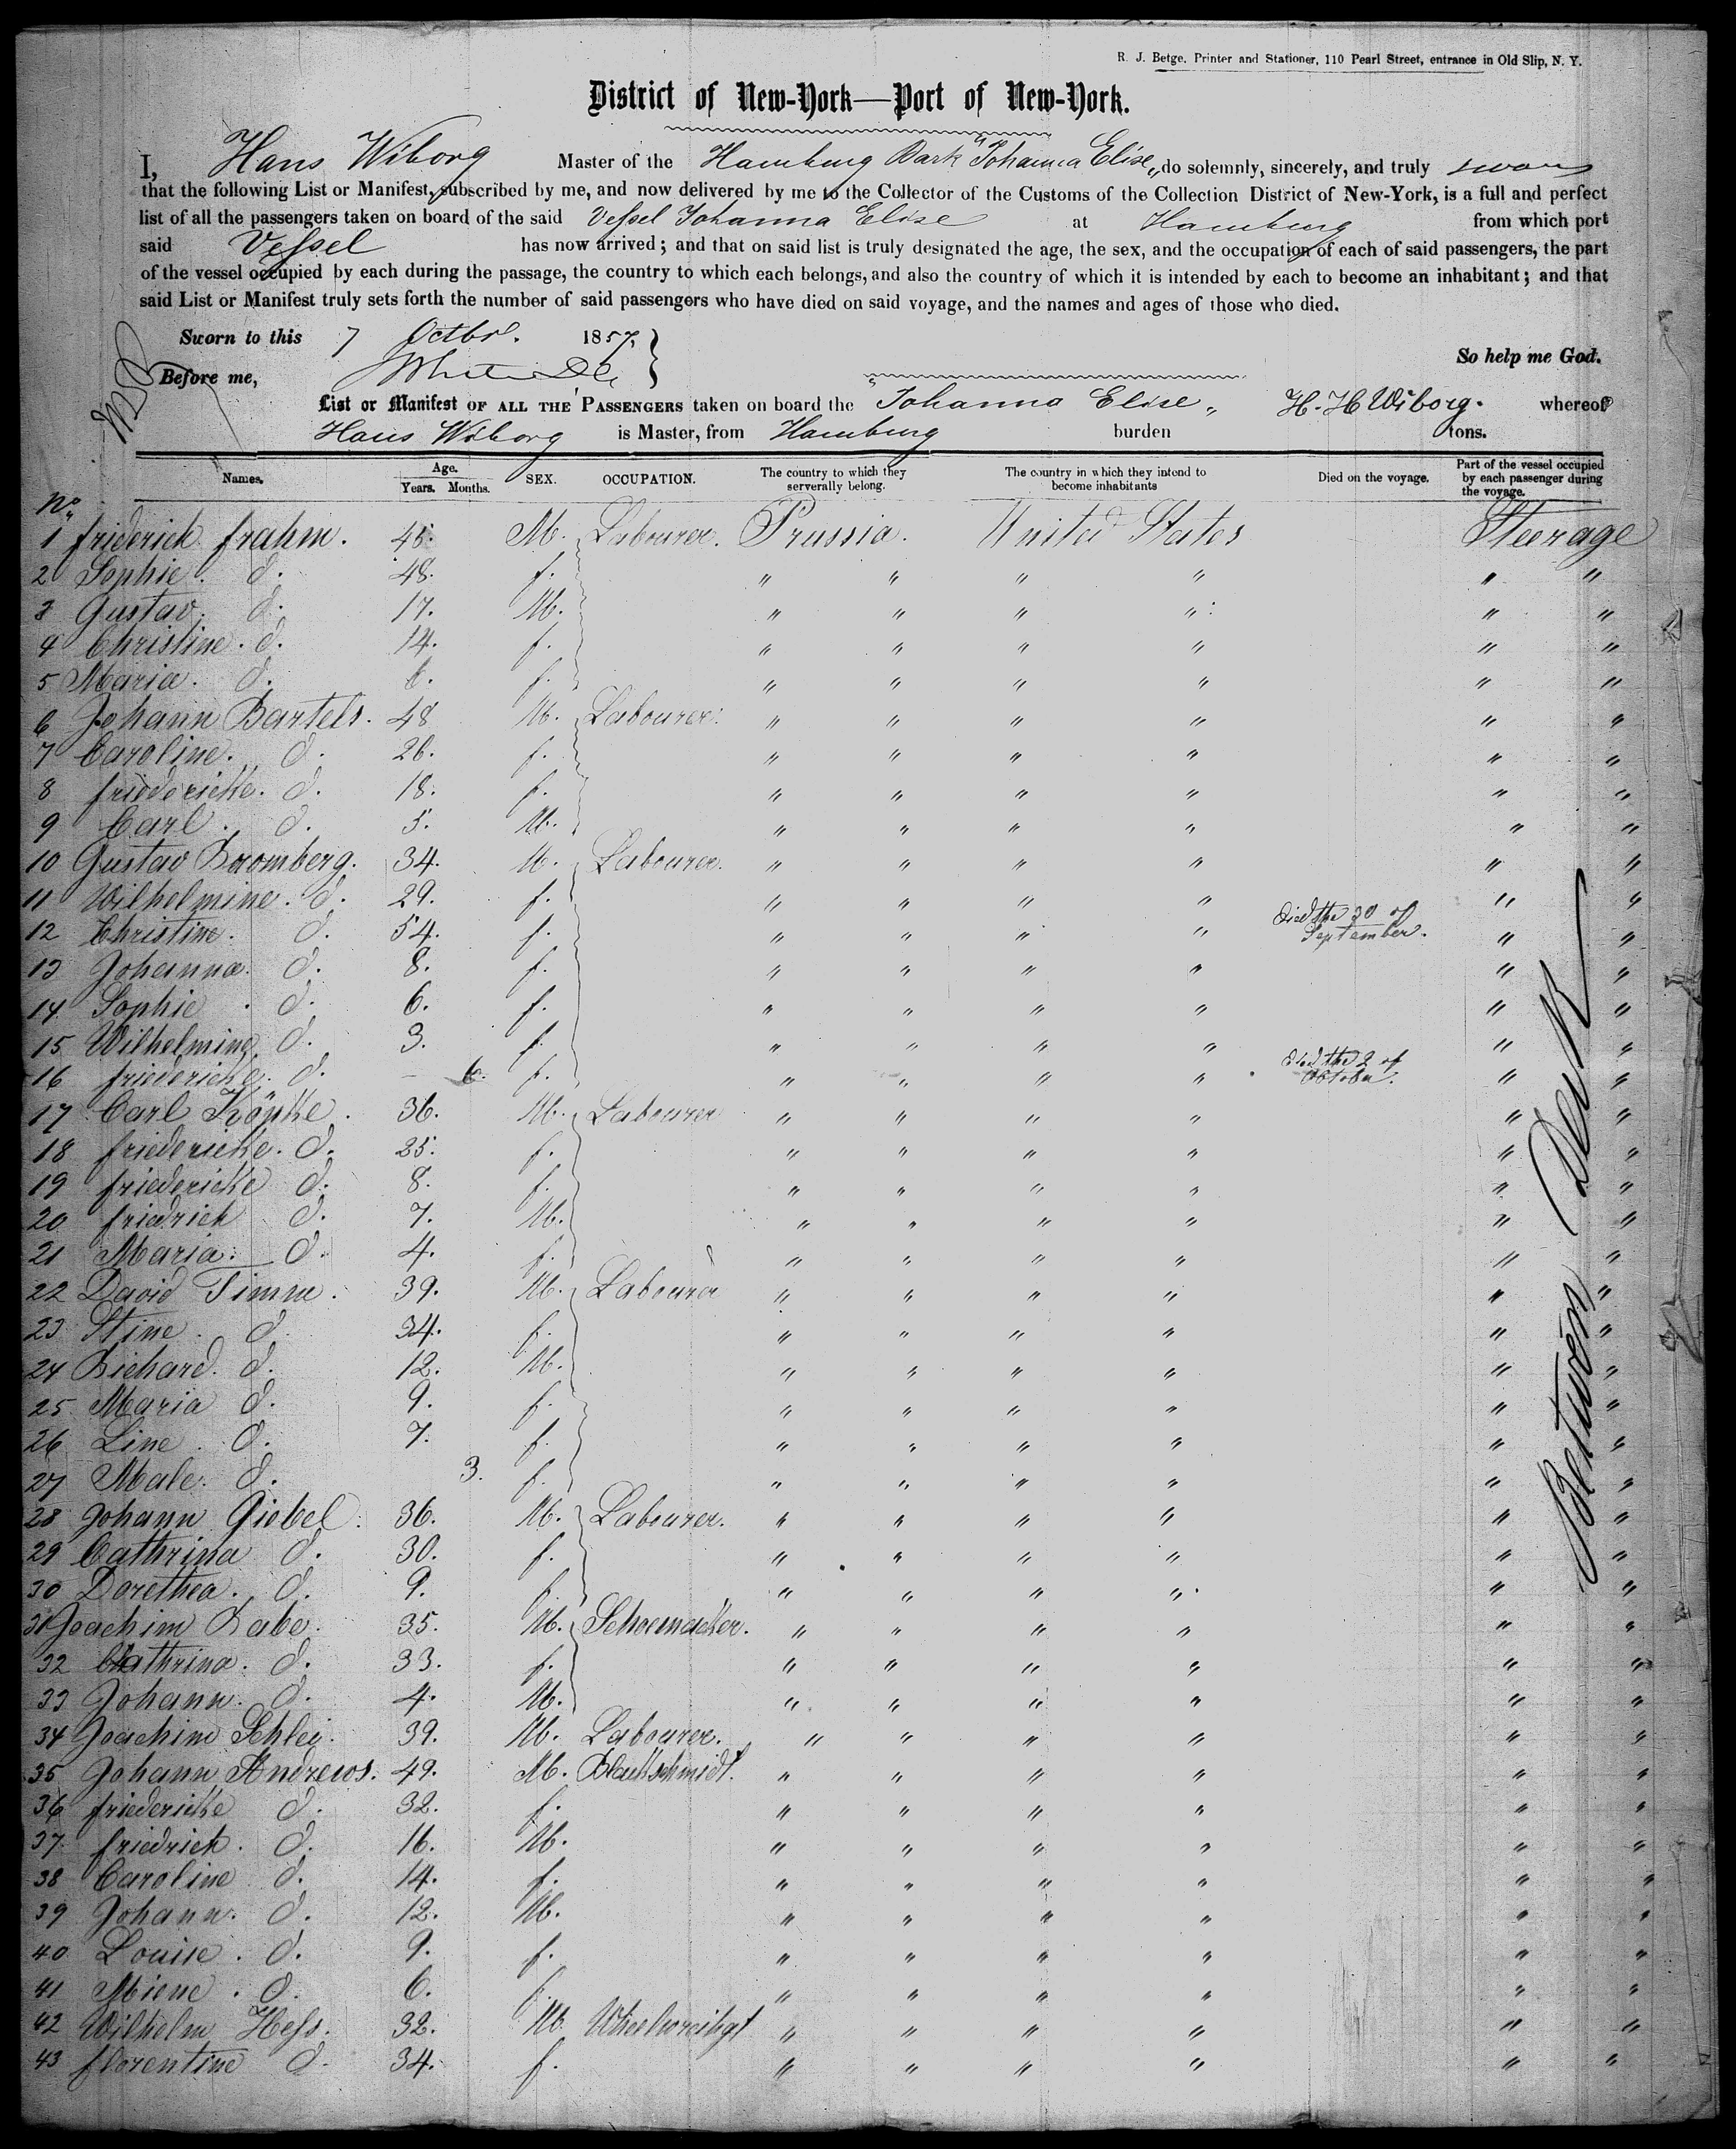 R. J. Betge, Printer and Stationer, 110 Pearl Street, entrance in Old Slip, N. Y.
District of New-York—Port of New-York.
I, Hans Wiborg Master of the Hamburg Bark "Johanna Elise" do solemnly, sincerely, and truly swear
that the following List or Manifest, subscribed by me, and now delivered by me to the Collector of the Customs of the Collection District of New-York, is a full and perfect
list of all the passengers taken on board of the said Vessel Johanna Elise at Hamburg from which port
said Vessel has now arrived; and that on said list is truly designated the age, the sex, and the occupation of each of said passengers, the part
of the vessel occupied by each during the passage, the country to which each belongs, and also the country of which it is intended by each to become an inhabitant; and that
said List or Manifest truly sets forth the number of said passengers who have died on said voyage, and the names and ages of those who died.
Sworn to this 7 Octbr. 1857. So help me God.
Before me,
List or Manifest OF ALL THE PASSENGERS taken on board the "Johanna Elise" H. H Wiborg. whereof
Hans Wiborg is Master, from Hamburg burden tons.
Names. Age. Years. Months. SEX. OCCUPATION. The country to which they serverally belong. The country in which they intend to become inhabitants Died on the voyage. Part of the vessel occupied by each passenger during the voyage.
No
1 friderich frahm. 45. M. Labourer. Prussia. United States Steerage
2 Sophie. d. 48. f. " " " " " "
3 Gustav. d. 17. M. " " " " " "
4 Christine. d. 14. f. " " " " " "
5 Maria. d. 6. f. " " " " " "
6 Johann Bartels. 48 M. Labourer. " " " " " "
7 Caroline. d. 26. f. " " " " " "
8 friedericke. d. 18. f. " " " " " "
9 Carl. d. 5. M. " " " " " "
10 Gustav Bromberg. 34. M. Labourer. " " " " " "
11 Wilhelmine. d. 29. f. " " " " " "
12 Christine. d. 54. f. " " " " Died the 30 of September. " "
13 Johanna. d. 8. f. " " " " " "
14 Sophie. d. 6. f. " " " " " "
15 Wilhelmine. d. 3. f. " " " " " "
16 friedericke. d. — 6. f. " " " " Died the 2 of October. " "
17 Carl Köpke. 36. M. Labourer " " " " " "
18 friedericke. d. 25. f. " " " " " "
19 friedericke d. 8. f. " " " " " "
20 friedrich d. 7. M. " " " " " "
21 Maria. d. 4. f. " " " " " "
22 David Timm. 39. M. Labourer " " " " " "
23 Stine. d. 34. f. " " " " " "
24 Richard. d. 12. M. " " " " " "
25 Maria d. 9. f. " " " " " "
26 Line. d. 7. f. " " " " " "
27 Male. d. 3. f. " " " " " "
28 Johann Giebel. 36. M. Labourer. " " " " " "
29 Cathrina d. 30. f. " " " " " "
30 Dorethea. d. 9. f. " " " " " "
31 Joachim Rabe. 35. M. Schoemacker. " " " " " "
32 Cathrina. d. 33. f. " " " " " "
33 Johann. d. 4. M. " " " " " "
34 Joachim Schlei. 39. M. Labourer. " " " " " "
35 Johann Andrews. 49. M. Blackschmidt. " " " " " "
36 friedericke d. 32. f. " " " " " "
37. friedrich. d. 16. M. " " " " " "
38 Caroline d. 14. f. " " " " " "
39 Johann. d. 12. M. " " " " " "
40 Louise. d. 9. f. " " " " " "
41 Miene. d. 6. f. " " " " " "
42 Wilhelm Hess. 32. M. " " " " " "
43 florentine d. 34. f. " " " " " "
Between Deck